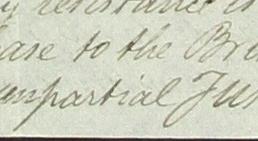 resistance is
ase to the Bri
impartial Jus